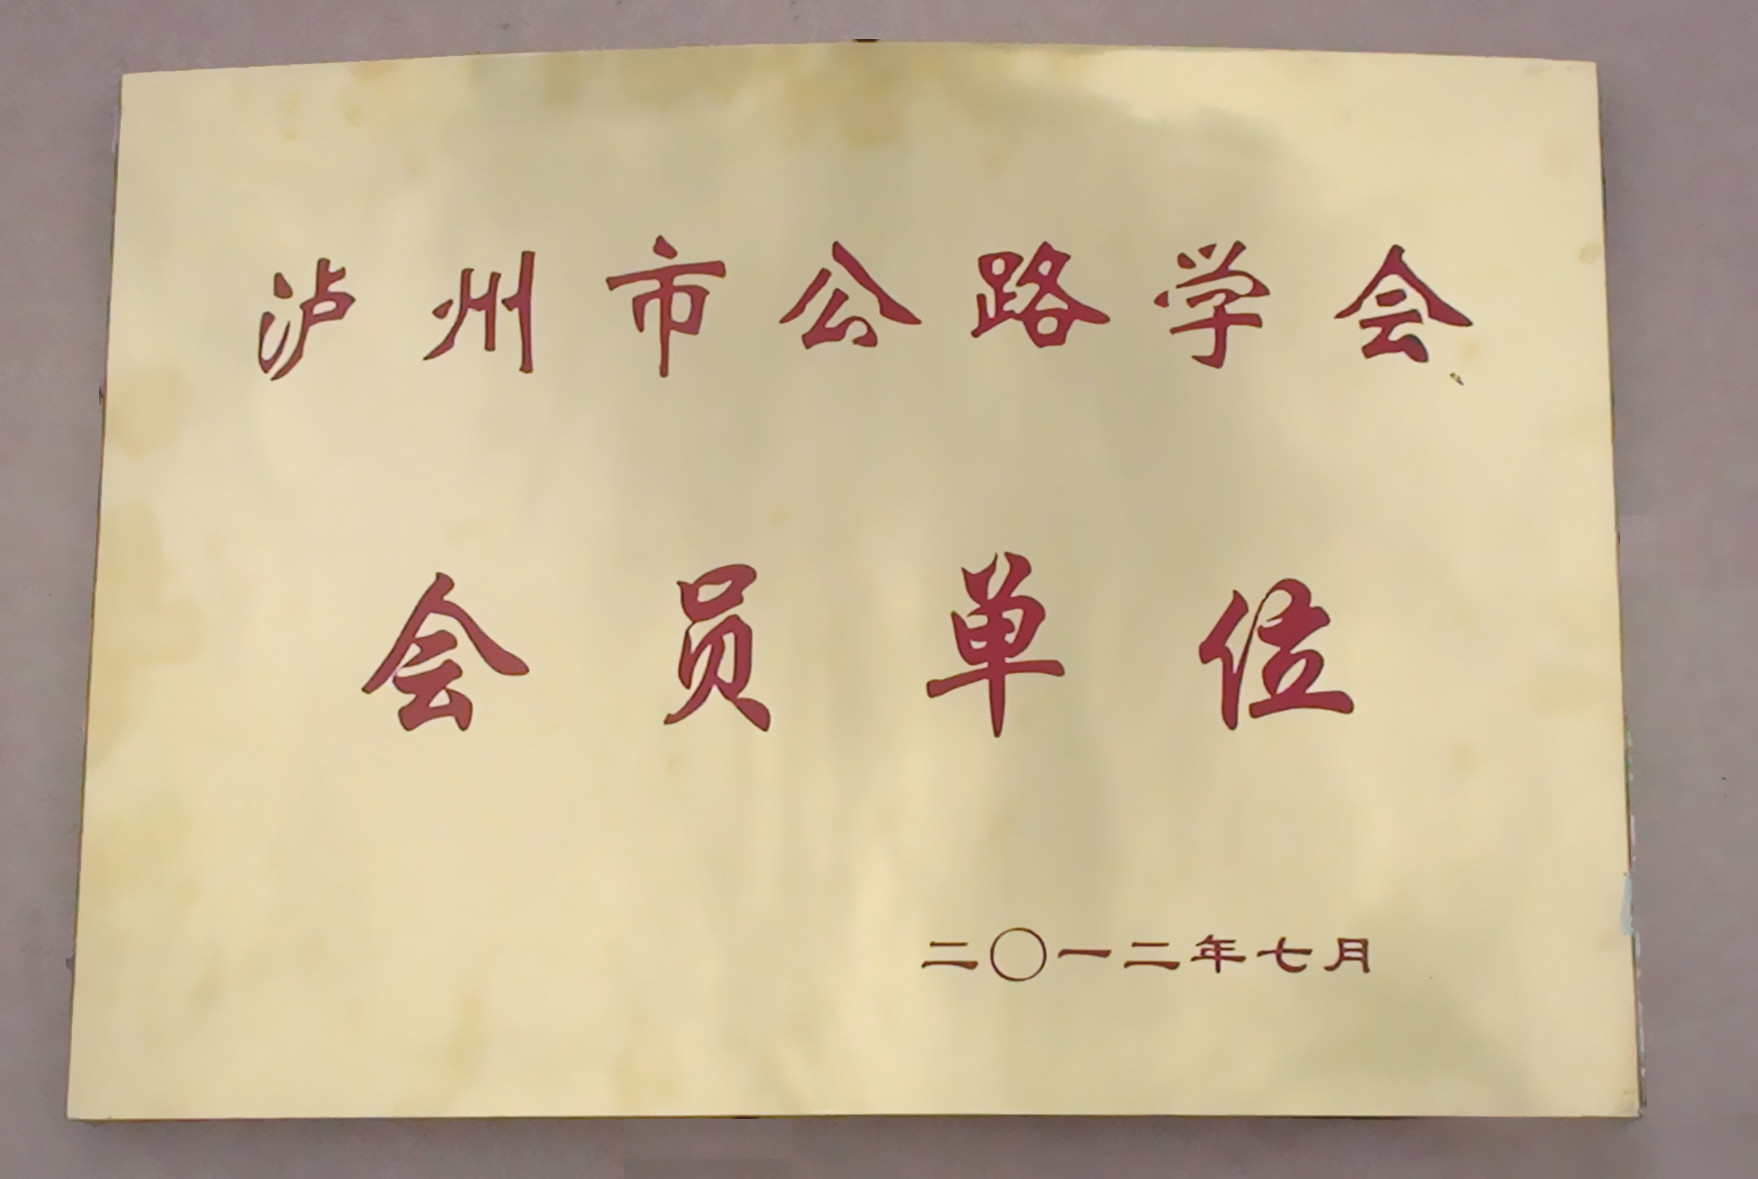 泸州市公路学会
会员单位
二〇一二年七月